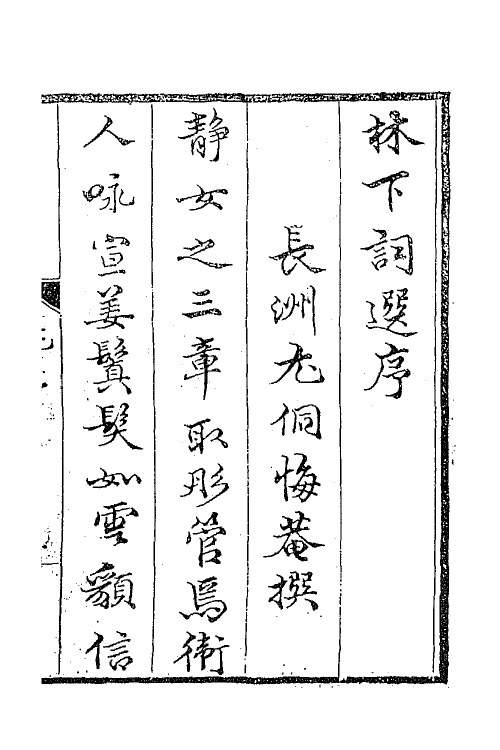 林下詞選序
長洲尤侗悔菴撰
靜女之三章取彤管焉衛
人咏宣姜鬒髮如雲顏信